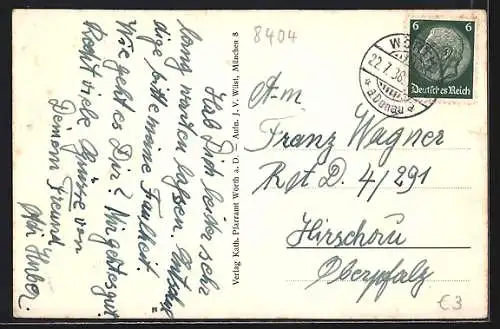 8404
Hab Dich leider sehr
lang warten lassen. Entschul=
dige bitte meine Faulheit.
Wie geht es Dir? Mir geht es gut.
Recht viele Grüsse von
Deinem Freund
Huber.
Verlag Kath. Pfarramt Wörth a. D. Aufn. J. V. Wüst, München 8
6 6
Deutsches Reich
22.7.36
a Donau
Am
Franz Wagner
R t D. 4/291
Hirschau
Oberpfalz
€3